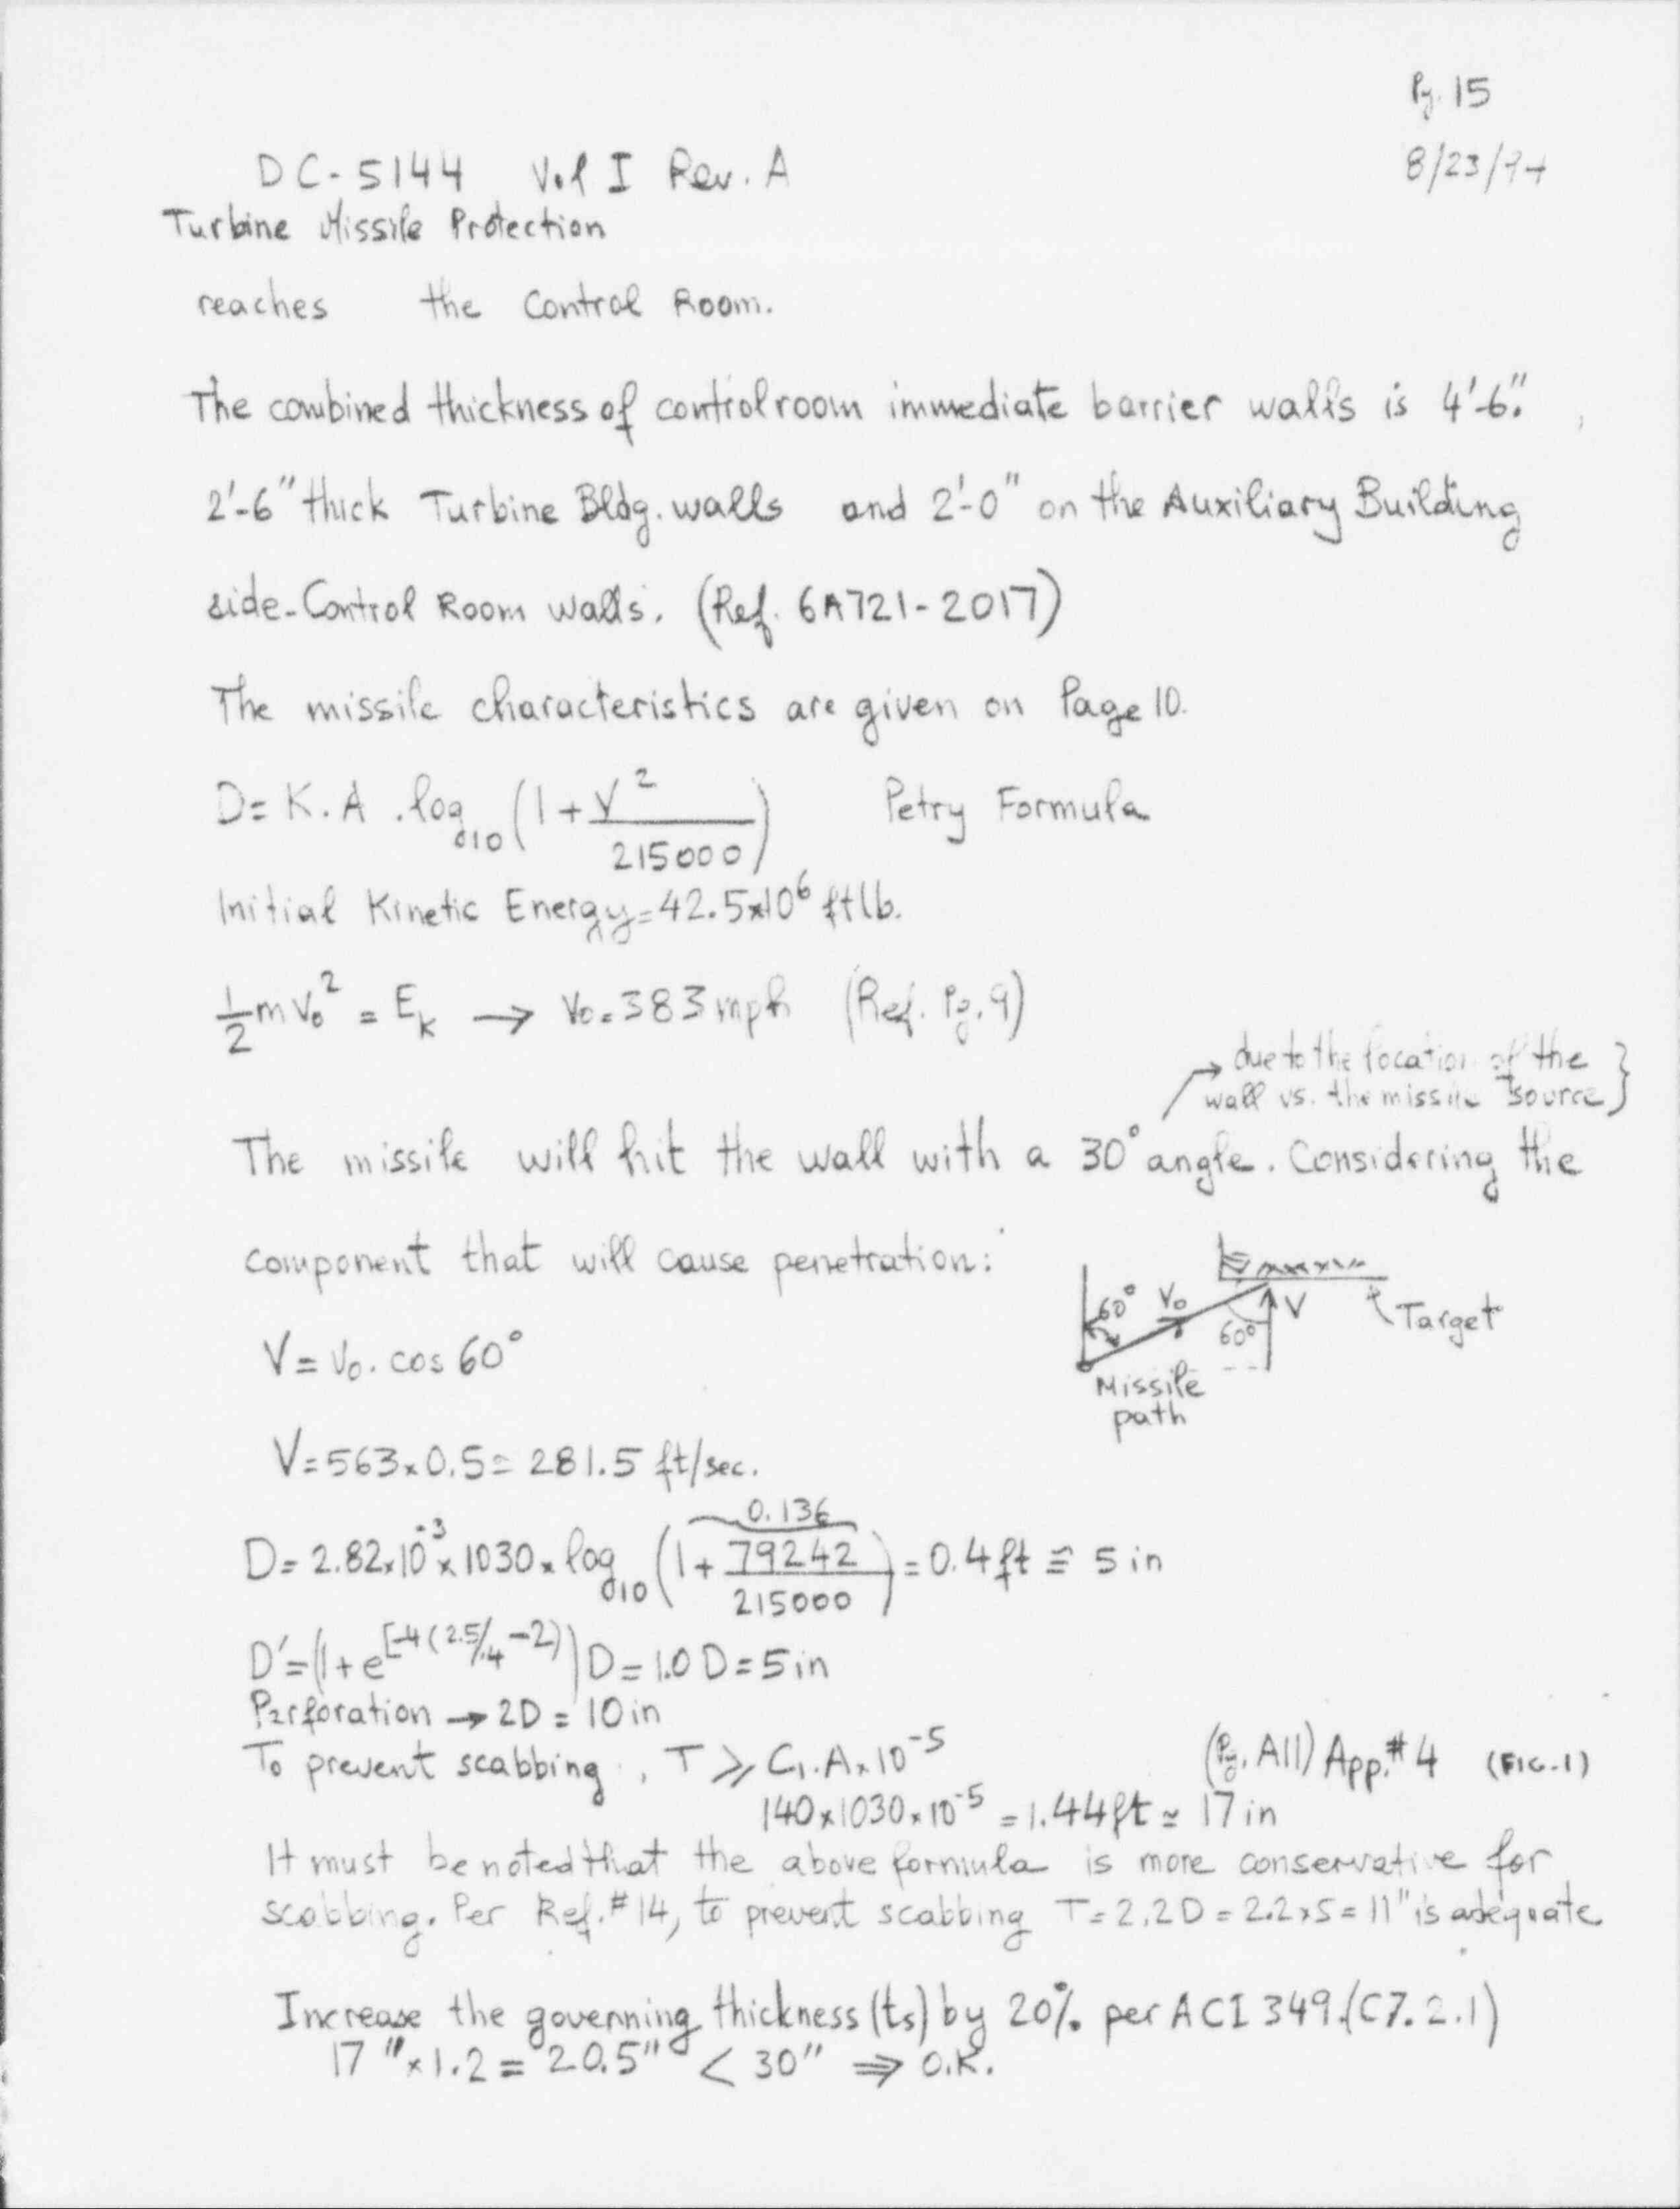 Pg. 15
8/23/94
DC-5144 Vol I Rev. A
Turbine Missile Protection
reaches the Control Room.
The combined thickness of control room immediate barrier walls is 4'-6".
2'-6" thick Turbine Bldg. walls and 2'-0" on the Auxiliary Building
side-Control Room walls. (Ref. 6A721-2017)
The missile characteristics are given on Page 10.
D = K. A . log10 (1 + V² / 215000) Petry Formula
Initial Kinetic Energy = 42.5x10⁶ ft lb.
1/2 m V₀² = Eₖ → V₀ = 383 mph (Ref. Pg. 9)
→ due to the location of the
wall vs. the missile source }
The missile will hit the wall with a 30° angle. Considering the
component that will cause penetration:
60° V₀ 60° V Target
Missile
path
V = V₀. cos 60°
V = 563 x 0.5 = 281.5 ft/sec.
0.136
D = 2.82x10⁻³ x 1030 x log10 (1 + 79242 / 215000) = 0.4 ft ≅ 5 in
D' = (1 + e^[-4(2.5/.4 - 2)) D = 1.0 D = 5 in
Perforation → 2D = 10 in
To prevent scabbing, T ≥ C₁. A x 10⁻⁵ (Pg. A11) App. #4 (FIG-1)
140 x 1030 x 10⁻⁵ = 1.44 ft ≃ 17 in
It must be noted that the above formula is more conservative for
scabbing. Per Ref. #14, to prevent scabbing T = 2.2 D = 2.2 x 5 = 11" is adequate
Increase the governing thickness (ts) by 20% per ACI 349 (C7.2.1)
17" x 1.2 = 20.5" < 30" ⇒ O.K.